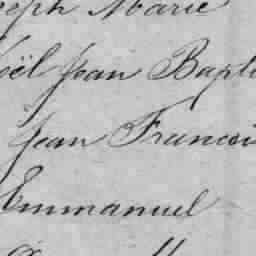 seph Marie
oël Jean Bapti
Jean Francoi
Emmanuel